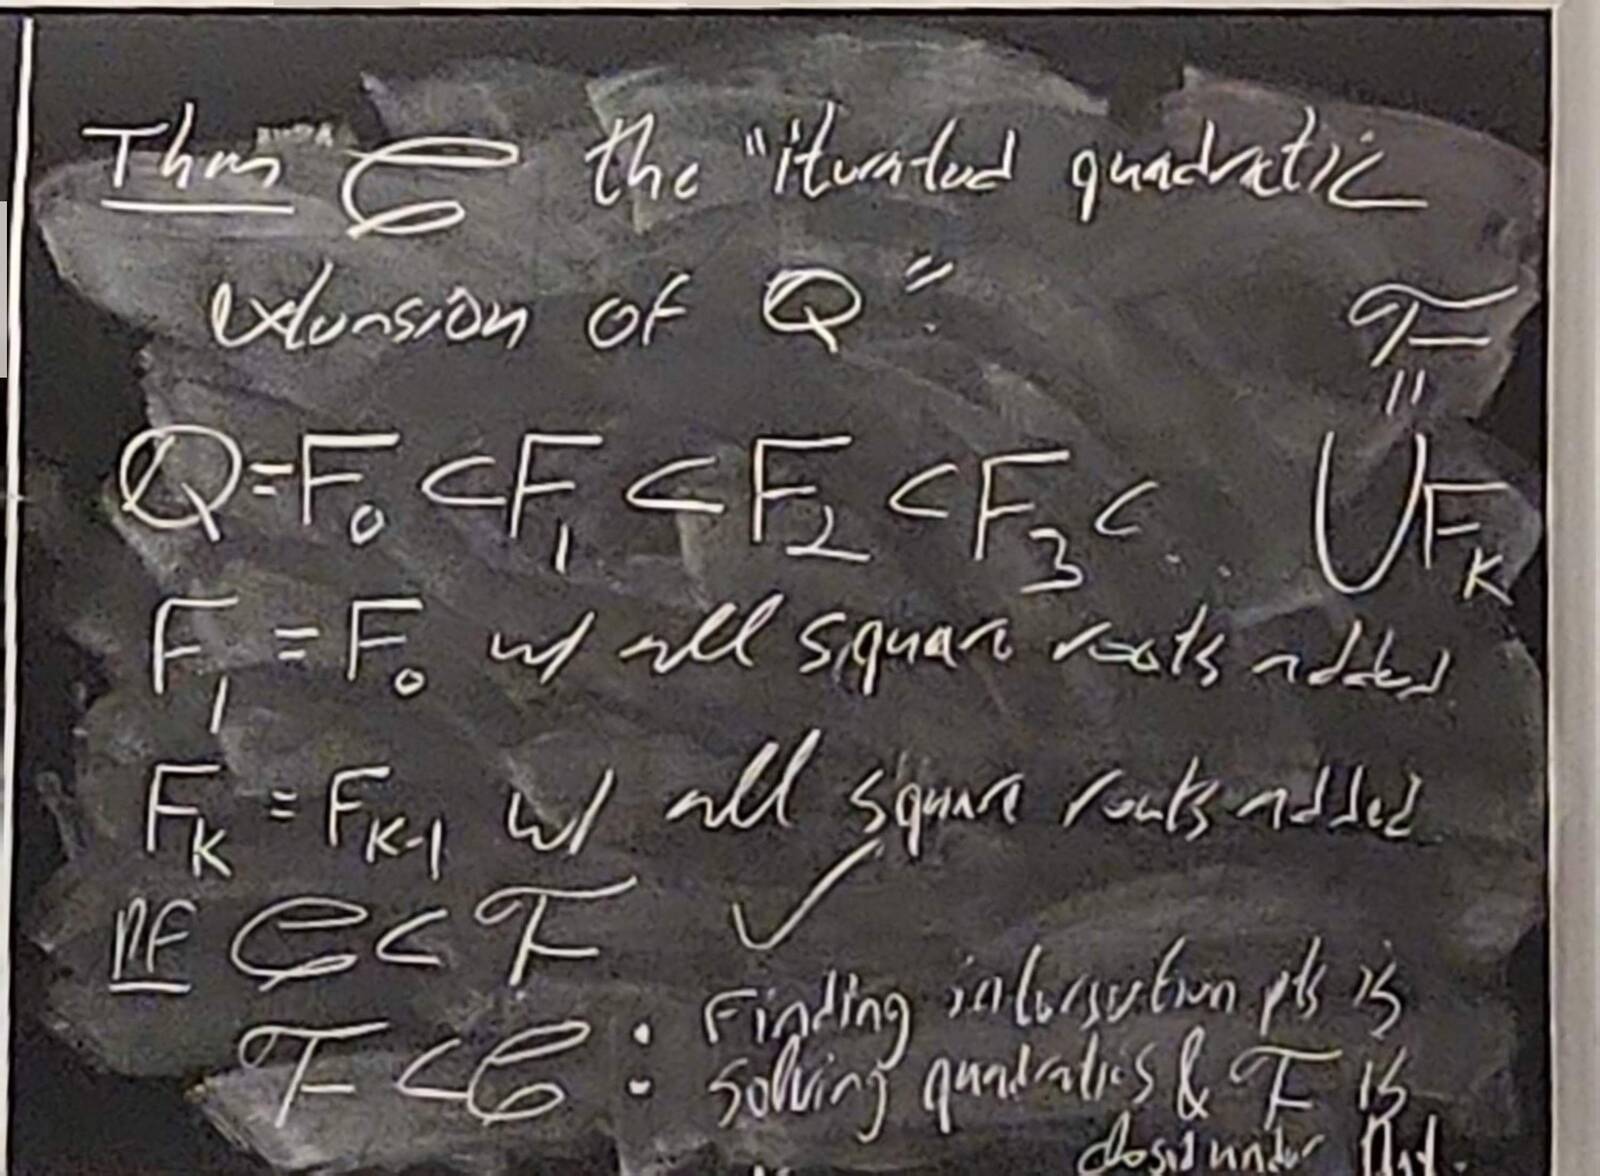 Thm 𝒞 the "iterated quadratic
extension of Q".
ℱ
=
Q=F₀ ⊂ F₁ ⊂ F₂ ⊂ F₃ ⊂ ... ∪F_K
F₁ = F₀ w/ all square roots added
F_K = F_{K-1} w/ all square roots added
Pf 𝒞 ⊂ ℱ ✓
ℱ ⊂ 𝒞 : Finding intersection pts is
solving quadratics & ℱ is
closed under that.